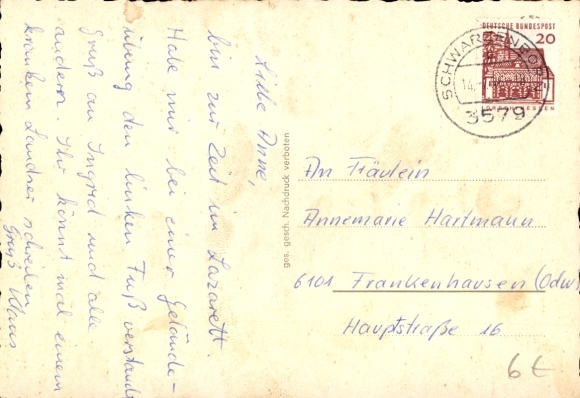 Liebe Anne,
bin zur Zeit im Lazarett.
Habe mir bei einer Gelände-
übung den linken Fuß verstaucht
Gruß an Ingrid und alle
andern Ihr könnt mal einem
kranken Landser schreiben
Gruß Klaus
ges. gesch. Nachdruck verboten
DEUTSCHE BUNDESPOST
20
SCHWARZENBORN
14.
3579
An Fräulein
Annemarie Hartmann
6101 Frankenhausen (Odw)
Hauptstraße 16
6 €